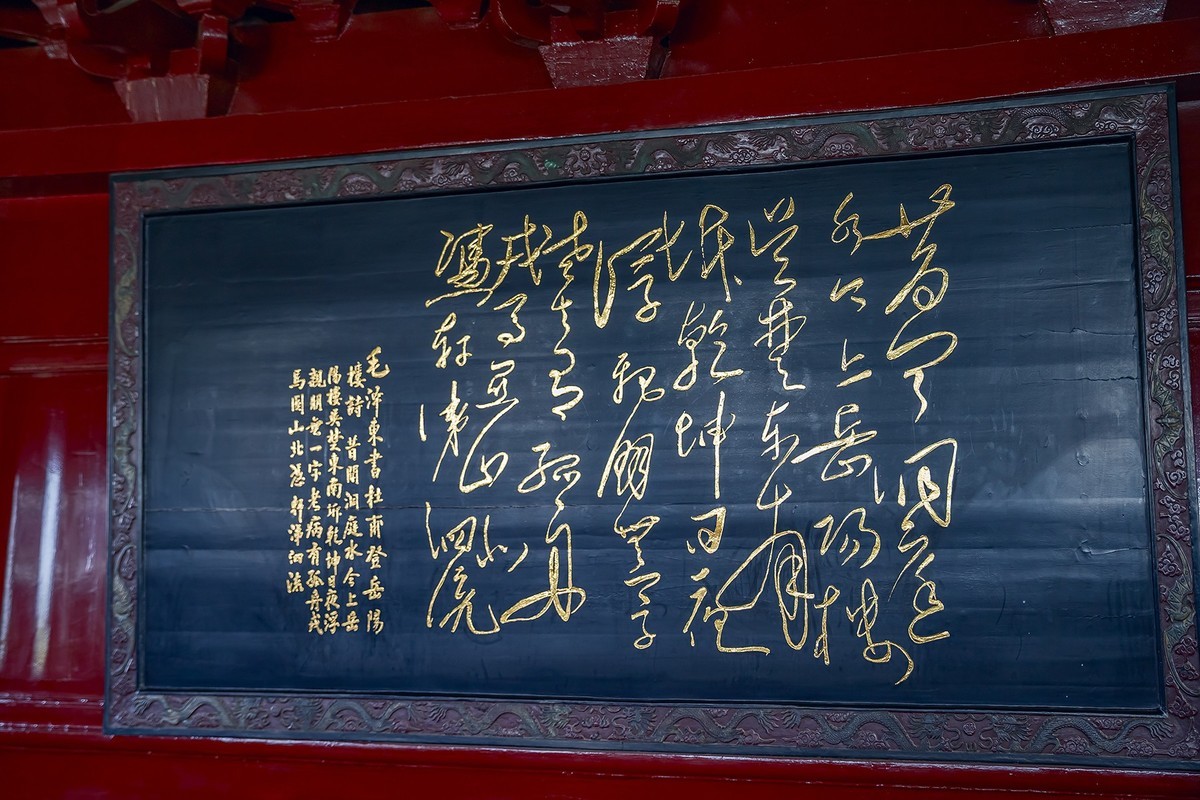 昔闻洞庭
水今上岳陽樓
吴楚東南
坼乾坤日夜
浮親朋無一字
老去有孤舟
戎馬關山北
憑軒涕泗流
毛泽東書杜甫登岳陽
樓詩 昔聞洞庭水今上岳
陽樓吴楚東南坼乾坤日夜浮
親朋無一字老病有孤舟戎
馬關山北憑軒涕泗流